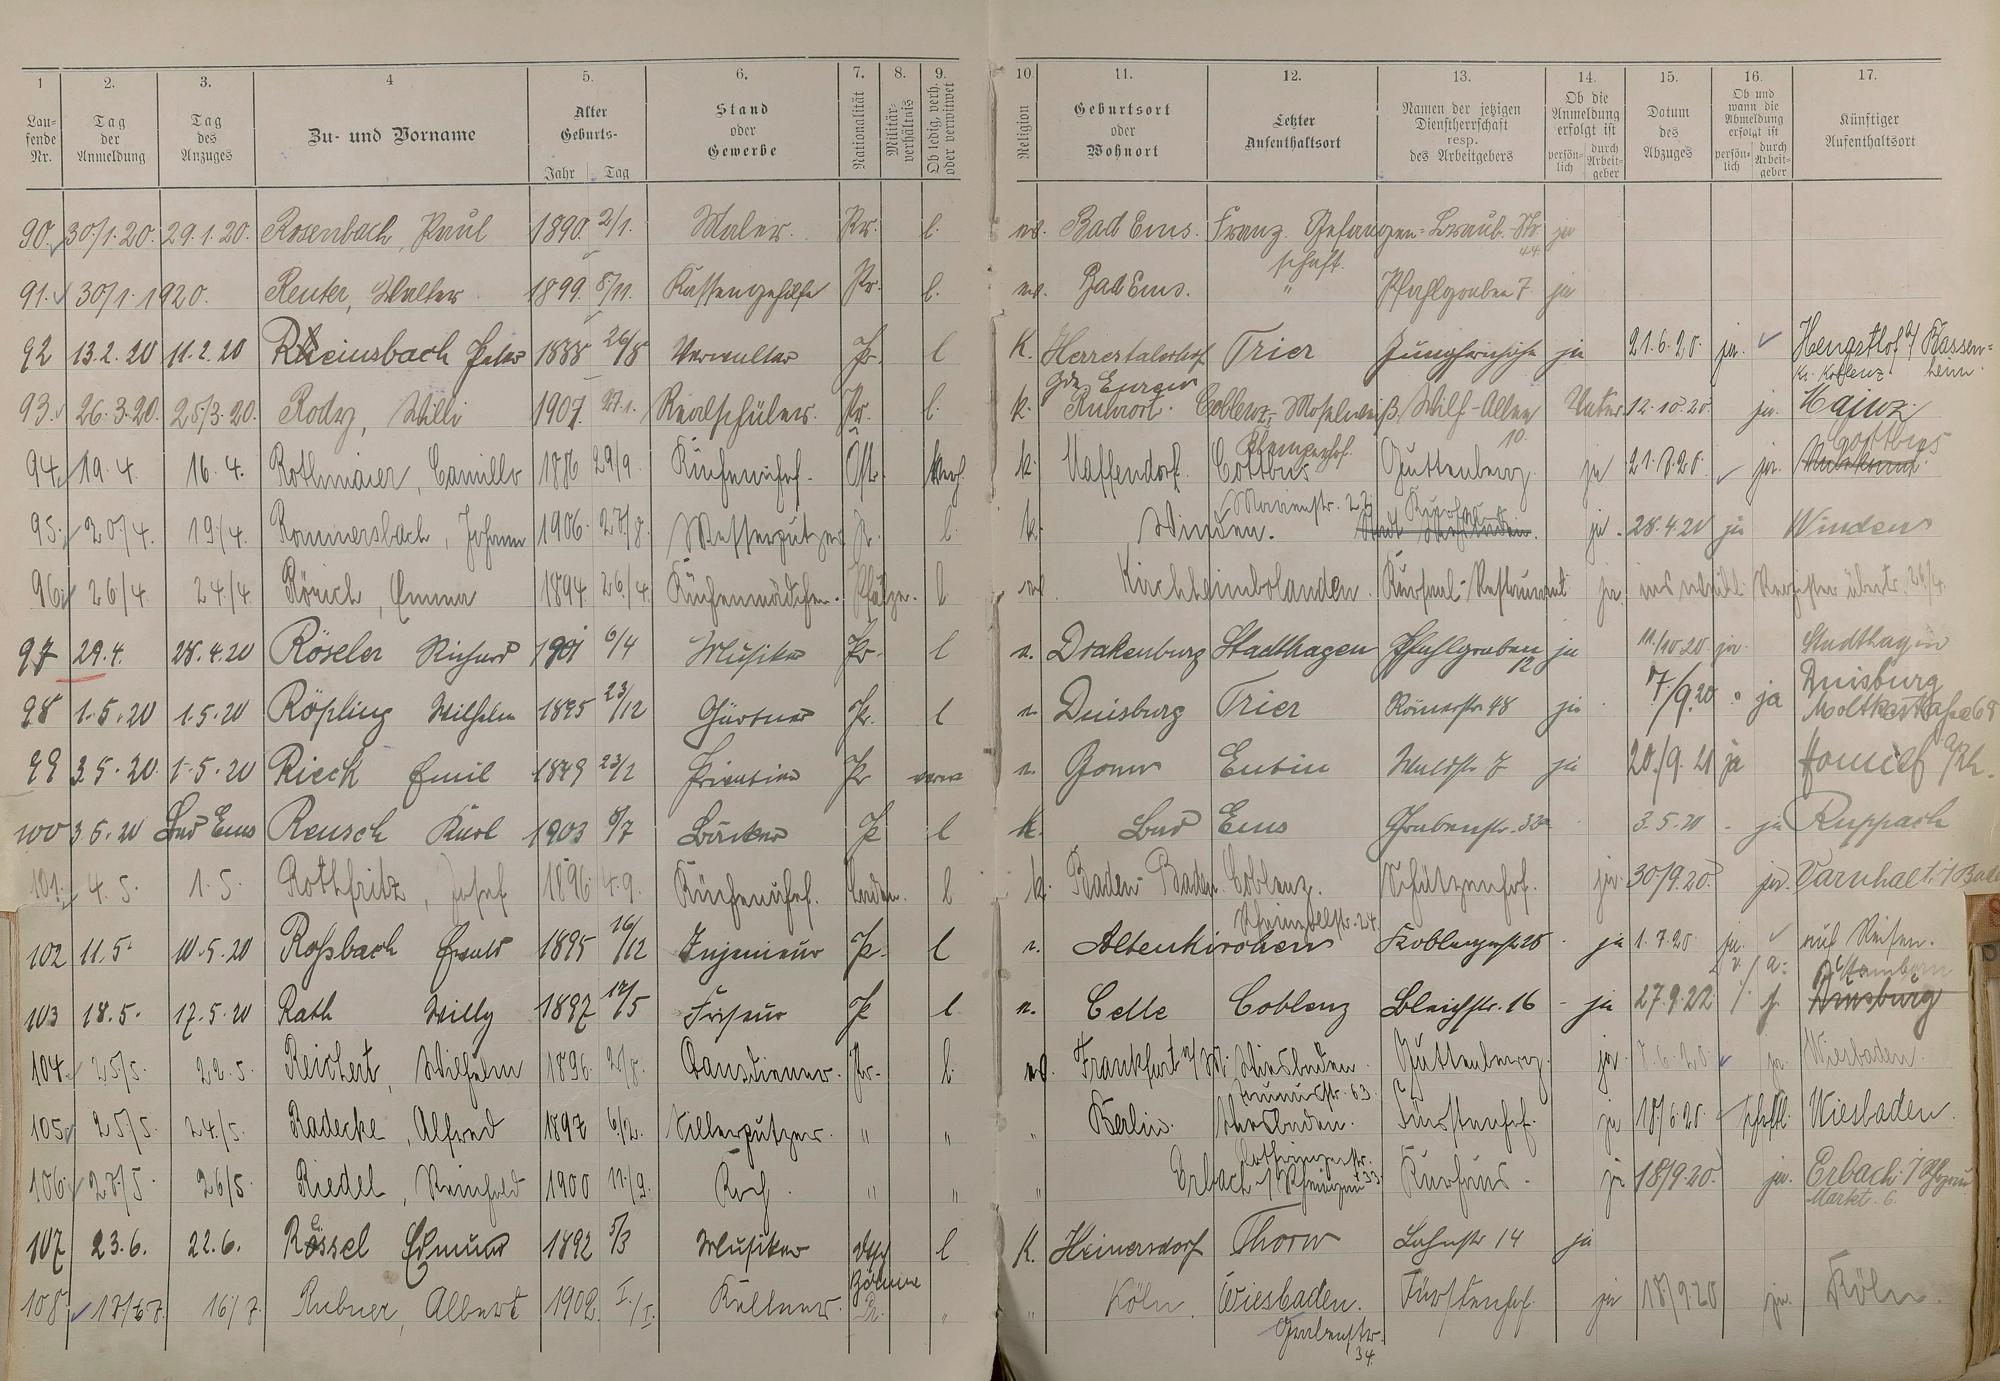 1 2. 3. 4 5. 6. 7. 8. 9. 10. 11. 12. 13. 14. 15. 16. 17.
Laufende Nr. Tag der Anmeldung Tag des Anzuges Zu- und Vorname Alter Geburts- Jahr Tag Stand oder Gewerbe Nationalität Militärverhältnis Ob ledig, verh. oder verwitwet Religion Geburtsort oder Wohnort Letzter Aufenthaltsort Namen der jetzigen Dienstherrschaft resp. des Arbeitgebers Ob die Anmeldung erfolgt ist persönlich durch Arbeitgeber Datum des Abzuges Ob und wann die Abmeldung erfolgt ist persönlich durch Arbeitgeber Künftiger Aufenthaltsort
90. 30/1.20. 29.1.20. Rosenbach, Paul 1890. 2/1. Maler. Pr. l. ev. Bad Ems. Franz. Gefangen- Braub.-Str. ja
schaft. 44.
91. 30/1. 1920. Reuter, Walter 1899. 5/11. Kassengehilfe Pr. l. ev. Bad Ems. " Pfahlgraben 7 ja
92 13.2.20 11.2.20 Rheinsbach Peter 1888 26/8 Verwalter Pr. l K. Herrestalerhof Trier ja 21.6.20. ja. Hengsthof b/ Bassen-
Kr. Koblenz heim.
93. 26.3.20. 25/3.20. Rody, Willi 1907. 27.1. Realschüler. Pr. l. k. Ruhrort. Coblenz, Moselweiß, Wilh-Allee Vater 12.10.20. ja. Mainz.
10.
94. 19.4. 16.4. Rothmaier, Camillo 1886 29/9. Küchenchef. Östr. verh. k. Kaffendorf. Cottbus Guttenberg. ja 21.8.20. ja. Cottbus
95. 20/4. 19/4. Rommersbach, Johann 1906 27/8. Messerputzer Pr. l. k. Winden. Marienstr. 22 Kurhaus ja. 28.4.20 ja Winden
96. 26/4. 24/4. Rörich, Emma 1894 26/4. Küchenmädchen. Pfälze. l ev. Kirchheimbolanden. Kursaal-Restaurant ja. ins weibl. Register übertr. 26/4.
97 29.4. 28.4.20 Röseler Richard 1901 6/4 Musiker Pr. l e. Drakenburg Stadthagen Pfahlgraben ja 11./10 20 ja. Stadthagen
12
98 1.5.20 1.5.20 Röpling Wilhelm 1895 23/12 Gärtner Pr. l e. Duisburg Trier Römerstr. 48 ja 7/9.20 ja Duisburg
Moltkestraße 68
99 3.5.20 1.5.20 Rieck Emil 1849 23/2 Pr e. Eutin Waldstr. 7 ja 20/9. 21 ja Honnef a/Rh.
100 3 5.20 Bad Ems Reusch Karl 1903 6/7 Bäcker Pr l k. Bad Ems Grabenstr. 32a 3.5.20 - ja Ruppach
101. 4.5. 1.5. Rothfritz, Josef 1896 4.9. Küchenchef. Baden. l k. Baden Baden. Coblenz. Schützenhof. ja. 30/9.20. ja. Varnhalt i/Bade
Rheinzollstr. 24.
102 11.5. 10.5.20 Roßbach Ewald 1895 16/12 Ingenieur Pr. l e. Altenkirchen Koblenzerstr 28 ja 1.7.20 ja. auf Reisen.
103 18.5. 17.5.20 Rath Willy 1897 12/5 Friseur Pr l e. Celle Coblenz Bleichstr. 16 - ja 27.9.22 Duisburg
104. 25/5. 22.5. Reichert, Wilhelm 1896. 2/8. Hausdiener. Pr. l. ev. Frankfurt a/M. Wiesbaden. Guttenberg. ja. 8.6.20. ja. Wiesbaden.
105. 25/5. 24./5. Radecke, Alfred 1897 6/2. Silberputzer. " " " Berlin. Wiesbaden. Fürstenhof. ja 18/6.20. schftl. Wiesbaden.
106. 27/5. 26/5. Riedel, Reinhold 1900 11/9. Koch. " " " Erbach i/Rheingau Kurhaus. ja 18/9.20. ja. Erbach i/Rhgau
Markt. 6.
107 23.6. 22.6. Rössel Edmund 1892 5/3 Musiker l k. Heinersdorf Thorn Lahnstr 14 ja
Böhme
108. 17/7. 16/7. Rubner, Albert 1902. I./I. Kellner. Pr. " " Köln. Wiesbaden. Fürstenhof. ja 18/9 20 ja. Köln.
Grabenstr.
34.